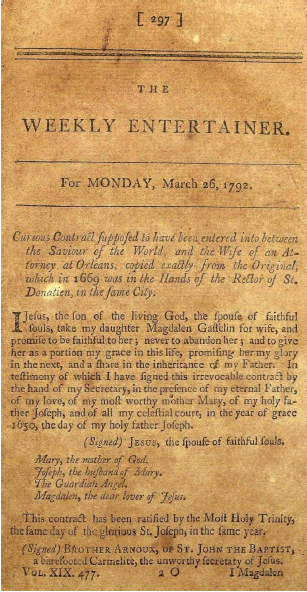 [ 297 ]
THE
WEEKLY ENTERTAINER.
For MONDAY, March 26, 1792.
Curious Contract ſuppoſed to have been entered into between
the Saviour of the World, and the Wife of an At-
torney at Orleans, copied exactly from the Original,
which in 1669 was in the Hands of the Rector of St.
Donatien, in the ſame City.
I Jeſus, the ſon of the living God, the ſpouſe of faithful
ſouls, take my daughter Magdalen Gaſſelin for wife, and
promiſe to be faithful to her; never to abandon her; and to give
her as a portion my grace in this life, promiſing her my glory
in the next, and a ſhare in the inheritance of my Father. In
teſtimony of which I have ſigned this irrevocable contract by
the hand of my Secretary, in the preſence of my eternal Father,
of my love, of my moſt worthy mother Mary, of my holy fa-
ther Joſeph, and of all my celeſtial court, in the year of grace
1650, the day of my holy father Joſeph.
(Signed) JESUS, the ſpouſe of faithful ſouls.
Mary, the mother of God.
Joſeph, the huſband of Mary.
The Guardian Angel.
Magdalen, the dear lover of Jeſus.
This contract has been ratified by the Moſt Holy Trinity,
the ſame day of the glorious St. Joſeph, in the ſame year.
(Signed) BROTHER ARNOUX, OF ST. JOHN THE BAPTIST,
a barefooted Carmelite, the unworthy ſecretary of Jeſus.
VOL. XIX. 477. 2 O I Magdalen